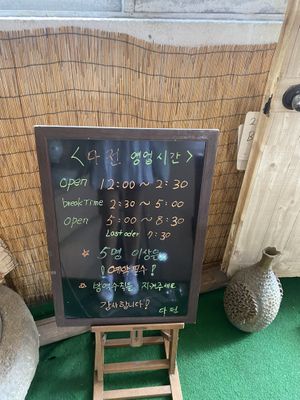 <다전 영업시간>
open 12:00~2:30
breakTime 2:30~5:00
open 5:00~8:30
Last oder 7:30
☆ 5명 이상은
! 예약필수!
☆ 방역수칙을 지켜주세요
감사합니다!
다전